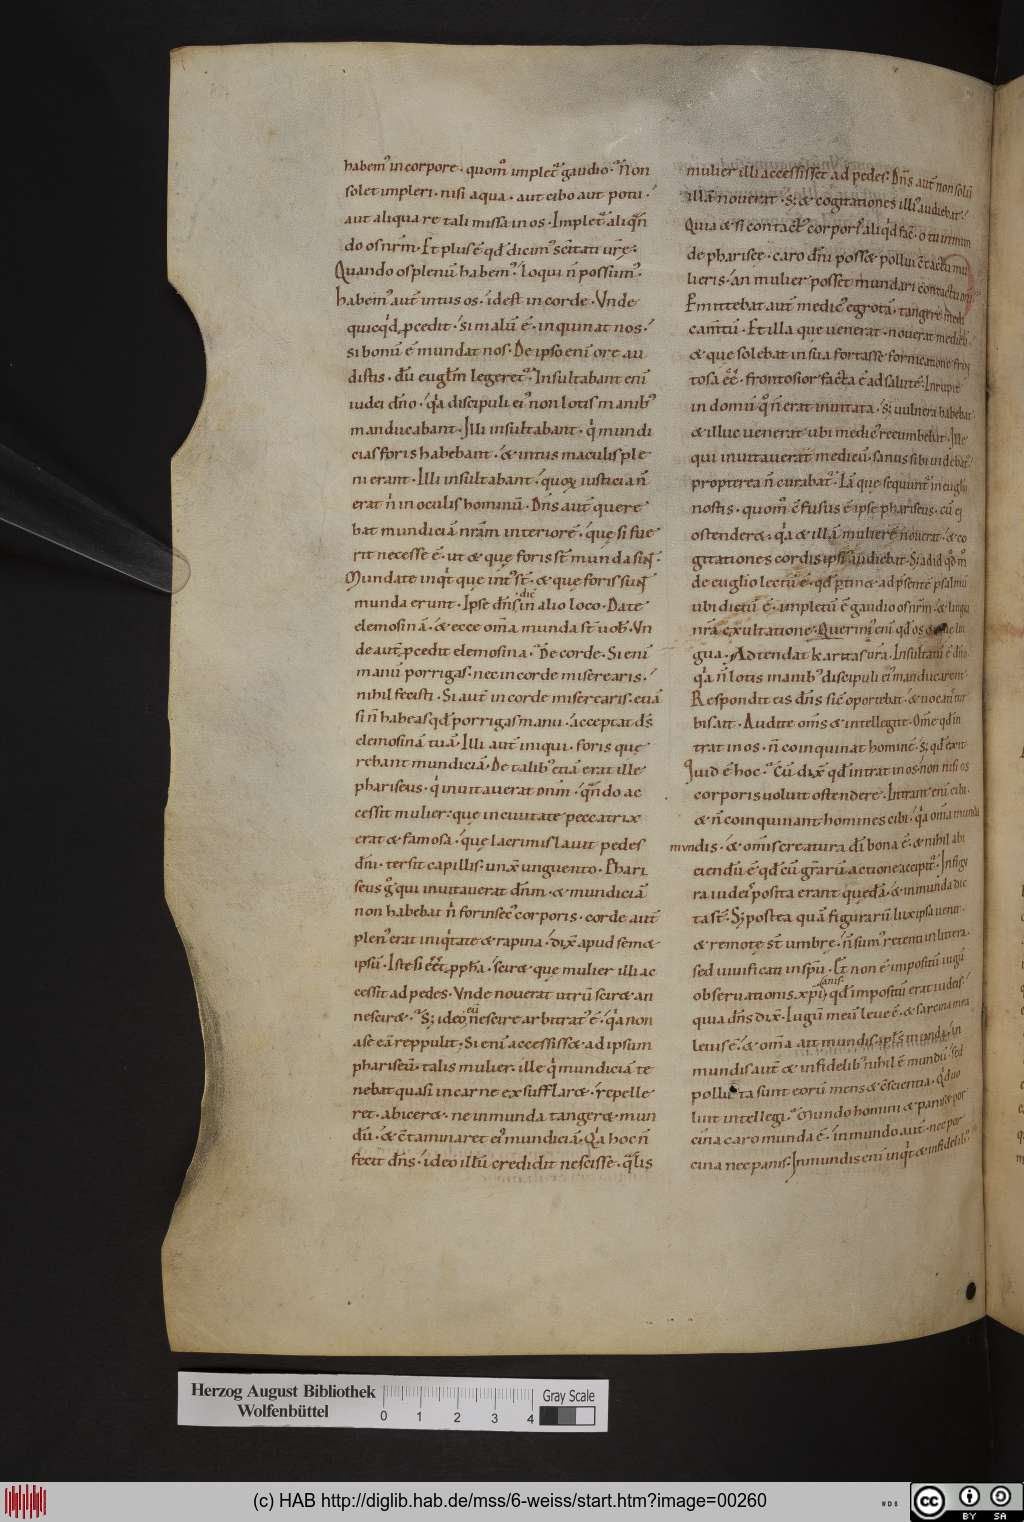 habem᾿ in corpore · quom̅ implet᷑ gaudio · Non
solet impleri · nisi aqua · aut cibo aut potu ·
aut aliqua re tali missa in os · Implet᷑ aliqn̅
do os nr̅m · Et plus e̅ qd̅ dicim᷒ sc̅itati ur̅ę ·
Quando os plenu̅ habem᷒ · loqui n̅ possum᷒ ·
habem᷒ aut̅ intus os · id est in corde · Unde
quicq'd ꝓcedit · si malu̅ e̅ · inquinat nos ·
si bonu̅ e̅ mundat nos · De ipso eni̅ ore au
distis · du̅ eugl̅m legeret᷑ · Insultabant eni̅
iudei dn̅o · q'a discipuli ei᷒ non lotis manib᷒
manducabant · Illi insultabant · q' mundi
cias foris habebant · & intus maculis ple
ni erant · Illi insultabant · quoꝝ iusticia n̅
erat n' in oculis hominu̅ · Dn̅s aut̅ quere
bat mundicia̅ nr̅am interiore̅ · que si fue
rit necesse e̅ · ut & quę foris st̅ munda sin̅t ·
Mundate inq't que int᷒ st̅ · & quę foris sunt
munda erunt · Ipse dn̅s dic̅ in alio loco · Date
elemosina̅ · & ecce om̅a munda st̅ uob᷒ · Un
de aut̅ ꝓcedit elemosina · De corde · Si eni̅
manu̅ porrigas · nec in corde miserearis ·
nihil fecisti · Si aut̅ in corde misereáris · etia̅
si n̅ habeas qd̅ porrigas manu · acceptat ds̅
elemosina̅ tua̅ · Illi aut̅ iniqui · foris quę
rebant mundicia̅ · De talib᷒ etia̅ erat ille
phariseus · q' inuitauerat dn̅m · qn̅do ac
cessit mulier · que in ciuitate peccatrix
erat & famosa · quę lacrimis lauit pedes
dn̅i · tersit capillis · unx̅ unguento · Phari
seus g᷒ qui inuitauerat dn̅m · & mundicia̅
non habebat n' forinsec᷒ corporis · corde aut̅
plen᷒ erat iniq'tate & rapina · dix̅ apud sem&
ipsu̅ · Iste si e̅e̅t ꝓph̅a · scir& quę mulier illi ac
cessit ad pedes · Unde nouerat utru̅ scir& an
nescir& · S; ideo eu̅ nescire arbitrat᷒ e̅ · q'a non
a se ea̅ reppulit · Si eni̅ accessiss& ad ipsum
phariseu̅ · talis mulier · ille q' mundicia̅ te
nebat quasi in carne exsufflar& · repelle
ret · abicer& · ne inmunda tanger& mun
du̅ · & c̅taminaret ei᷒ mundicia̅ · Q'a hoc n̅
fecit dn̅s · ideo illu̅ credidit nescisse · q̅lis
mulier illi accessisset ad pedes · Dn̅s aut̅ non solu̅
illa̅ nouerat · s; & cogitationes illi᷒ audiebat ·
Quia & si contact᷒ corporis aliq'd fac̅ · o tu inmun
de pharisee · caro dn̅i poss& pollui c̅tactu mu
lieris · an mulier posset mundari contactu dn̅i
Emittebat aut̅ medic᷒ egrota̅ · tangere medi
cam̅tu̅ · Et illa que uenerat · nouerat medicu̅
& quę solebat in sua fortasse fornicatione fron
tosa e̅e̅ · frontosior facta e̅ ad salute̅ · Inrupit
in domu̅ q° n̅ erat inuitata · s; uulnera habebat
& illuc uenerat ubi medic᷒ recumbebat · Ille
qui inuitauerat medicu̅ · sanus sibi uidebat᷑
propterea n̅ curabat᷑ · Ia̅ que sequunt᷑ in eugl̅io
nostis · quom̅ c̅fusus e̅ ipse phariseus · cu̅ ei
ostender& · q'a & illa̅ muliere̅ nouerat · & co
gitationes cordis ipsi᷒ audiebat · S; ad id q°d m°
de eug̅lio lectu̅ e̅ · qd̅ ptin& ad p̅sente̅ psalmu̅
ubi dictu̅ e̅ · impletu̅ e̅ gaudio os nr̅m · & lingua
nr̅a exultatione · Querim᷒ eni̅ qd̅ os & quę lin
gua · Adtendat karitas ur̅a · Insultatu̅ e̅ dn̅o
q'a n̅ lotis manib᷒ discipuli ei᷒ manducarent
Respondit eis dn̅s sic̅ oportebat · & uocatur tur
bis ait · Audite om̅s & intellegite · Om̅e qd̅ in
trat in os · n̅ coinquinat homine̅ · S; qd̅ exit
Quid e̅ hoc · Cu̅ dix̅ qd̅ intrat in os · non nisi os
corporis uoluit ostendere · Intrant eni̅ cibi
& n̅ coinquinant homines cibi · q'a om̅a munda
mundis · & om̅is creatura di̅ bona e̅ · & nihil abi
ciendu̅ e̅ qd̅ cu̅ gr̅aru̅ actione accipit᷑ · In figu
ra iudeis posita erant queda̅ · & inmunda dic
ta st̅ · S; postea qua̅ figuraru̅ lux ipsa uenit
& remote st̅ umbre · n̅ sum᷒ retenti in littera
sed uiuificati in sp̅u · Et non e̅ impositu̅ iugu̅
obseruationis xp̅ianis · qd̅ impositu̅ erat iudeis
quia dn̅s dix̅ · Iugu̅ meu̅ leue e̅ · & sarcina mea
leuis e̅ · & om̅a ait mundis apl̅s munda · in
mundis aut̅ & infidelib᷒ nihil e̅ mundu̅ · sed
polluta sunt eoru̅ mens & c̅scientia · Q'd uo
luit intellegi · Mundo homini & panis & por
cina caro munda e̅ · inmundo aut̅ · nec por
cina nec panis · Inmundis eni̅ inq't & infidelib᷒
Herzog August Bibliothek
Wolfenbüttel
0 1 2 3 4
Gray Scale
(c) HAB http://diglib.hab.de/mss/6-weiss/start.htm?image=00260
cc BY SA